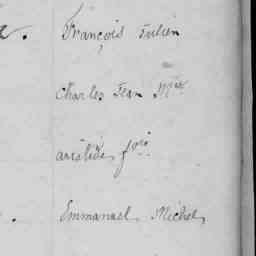 François Julien
Charles Jean Mie
aristide, fois
Emmanuel, Michel,